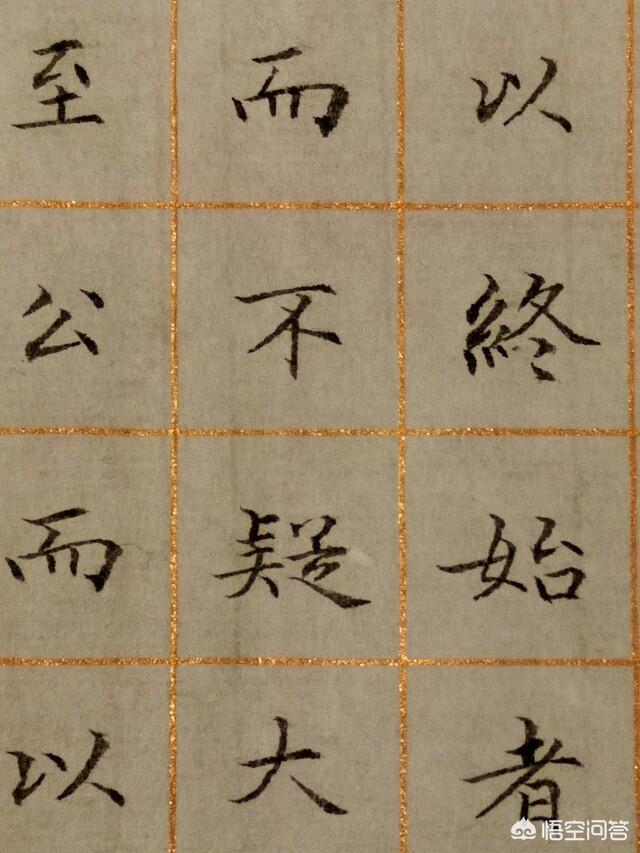 以終始者
而不疑大
至公而以
悟空问答